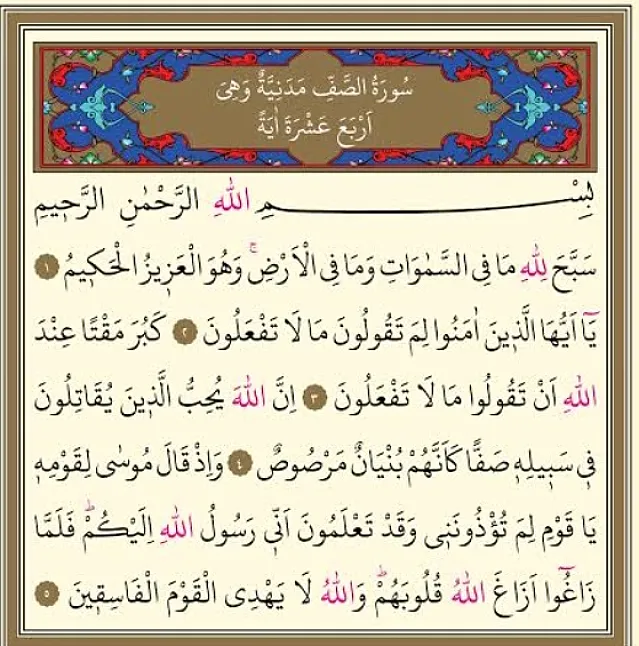 سُورَةُ الصَّفِّ مَدَنِيَّةٌ وَهِيَ
اَرْبَعَ عَشْرَةَ اٰيَةً
بِسْمِ اللّٰهِ الرَّحْمٰنِ الرَّحٖيمِ
سَبَّحَ لِلّٰهِ مَا فِى السَّمٰوَاتِ وَمَا فِى الْاَرْضِۚ وَهُوَ الْعَزٖيزُ الْحَكٖيمُ ١
يَٓا اَيُّهَا الَّذٖينَ اٰمَنُوا لِمَ تَقُولُونَ مَا لَا تَفْعَلُونَ ٢ كَبُرَ مَقْتًا عِنْدَ
اللّٰهِ اَنْ تَقُولُوا مَا لَا تَفْعَلُونَ ٣ اِنَّ اللّٰهَ يُحِبُّ الَّذٖينَ يُقَاتِلُونَ
فٖى سَبٖيلِهٖ صَفًّا كَاَنَّهُمْ بُنْيَانٌ مَرْصُوصٌ ٤ وَاِذْ قَالَ مُوسٰى لِقَوْمِهٖ
يَا قَوْمِ لِمَ تُؤْذُونَنٖى وَقَدْ تَعْلَمُونَ اَنّٖى رَسُولُ اللّٰهِ اِلَيْكُمْؕ فَلَمَّا
زَاغُٓوا اَزَاغَ اللّٰهُ قُلُوبَهُمْؕ وَاللّٰهُ لَا يَهْدِى الْقَوْمَ الْفَاسِقٖينَ ٥